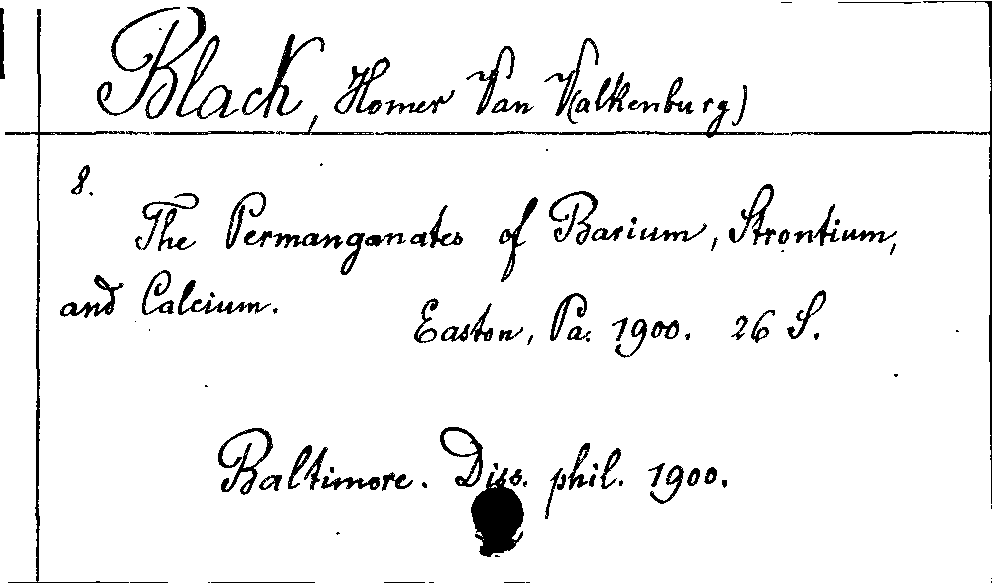 Black, Homer Van Valkenburg)
8.
The Permanganates of Barium, Strontium,
and Calcium.
Easton, Pa. 1900. 26 S.
Baltimore. Diss. phil. 1900.